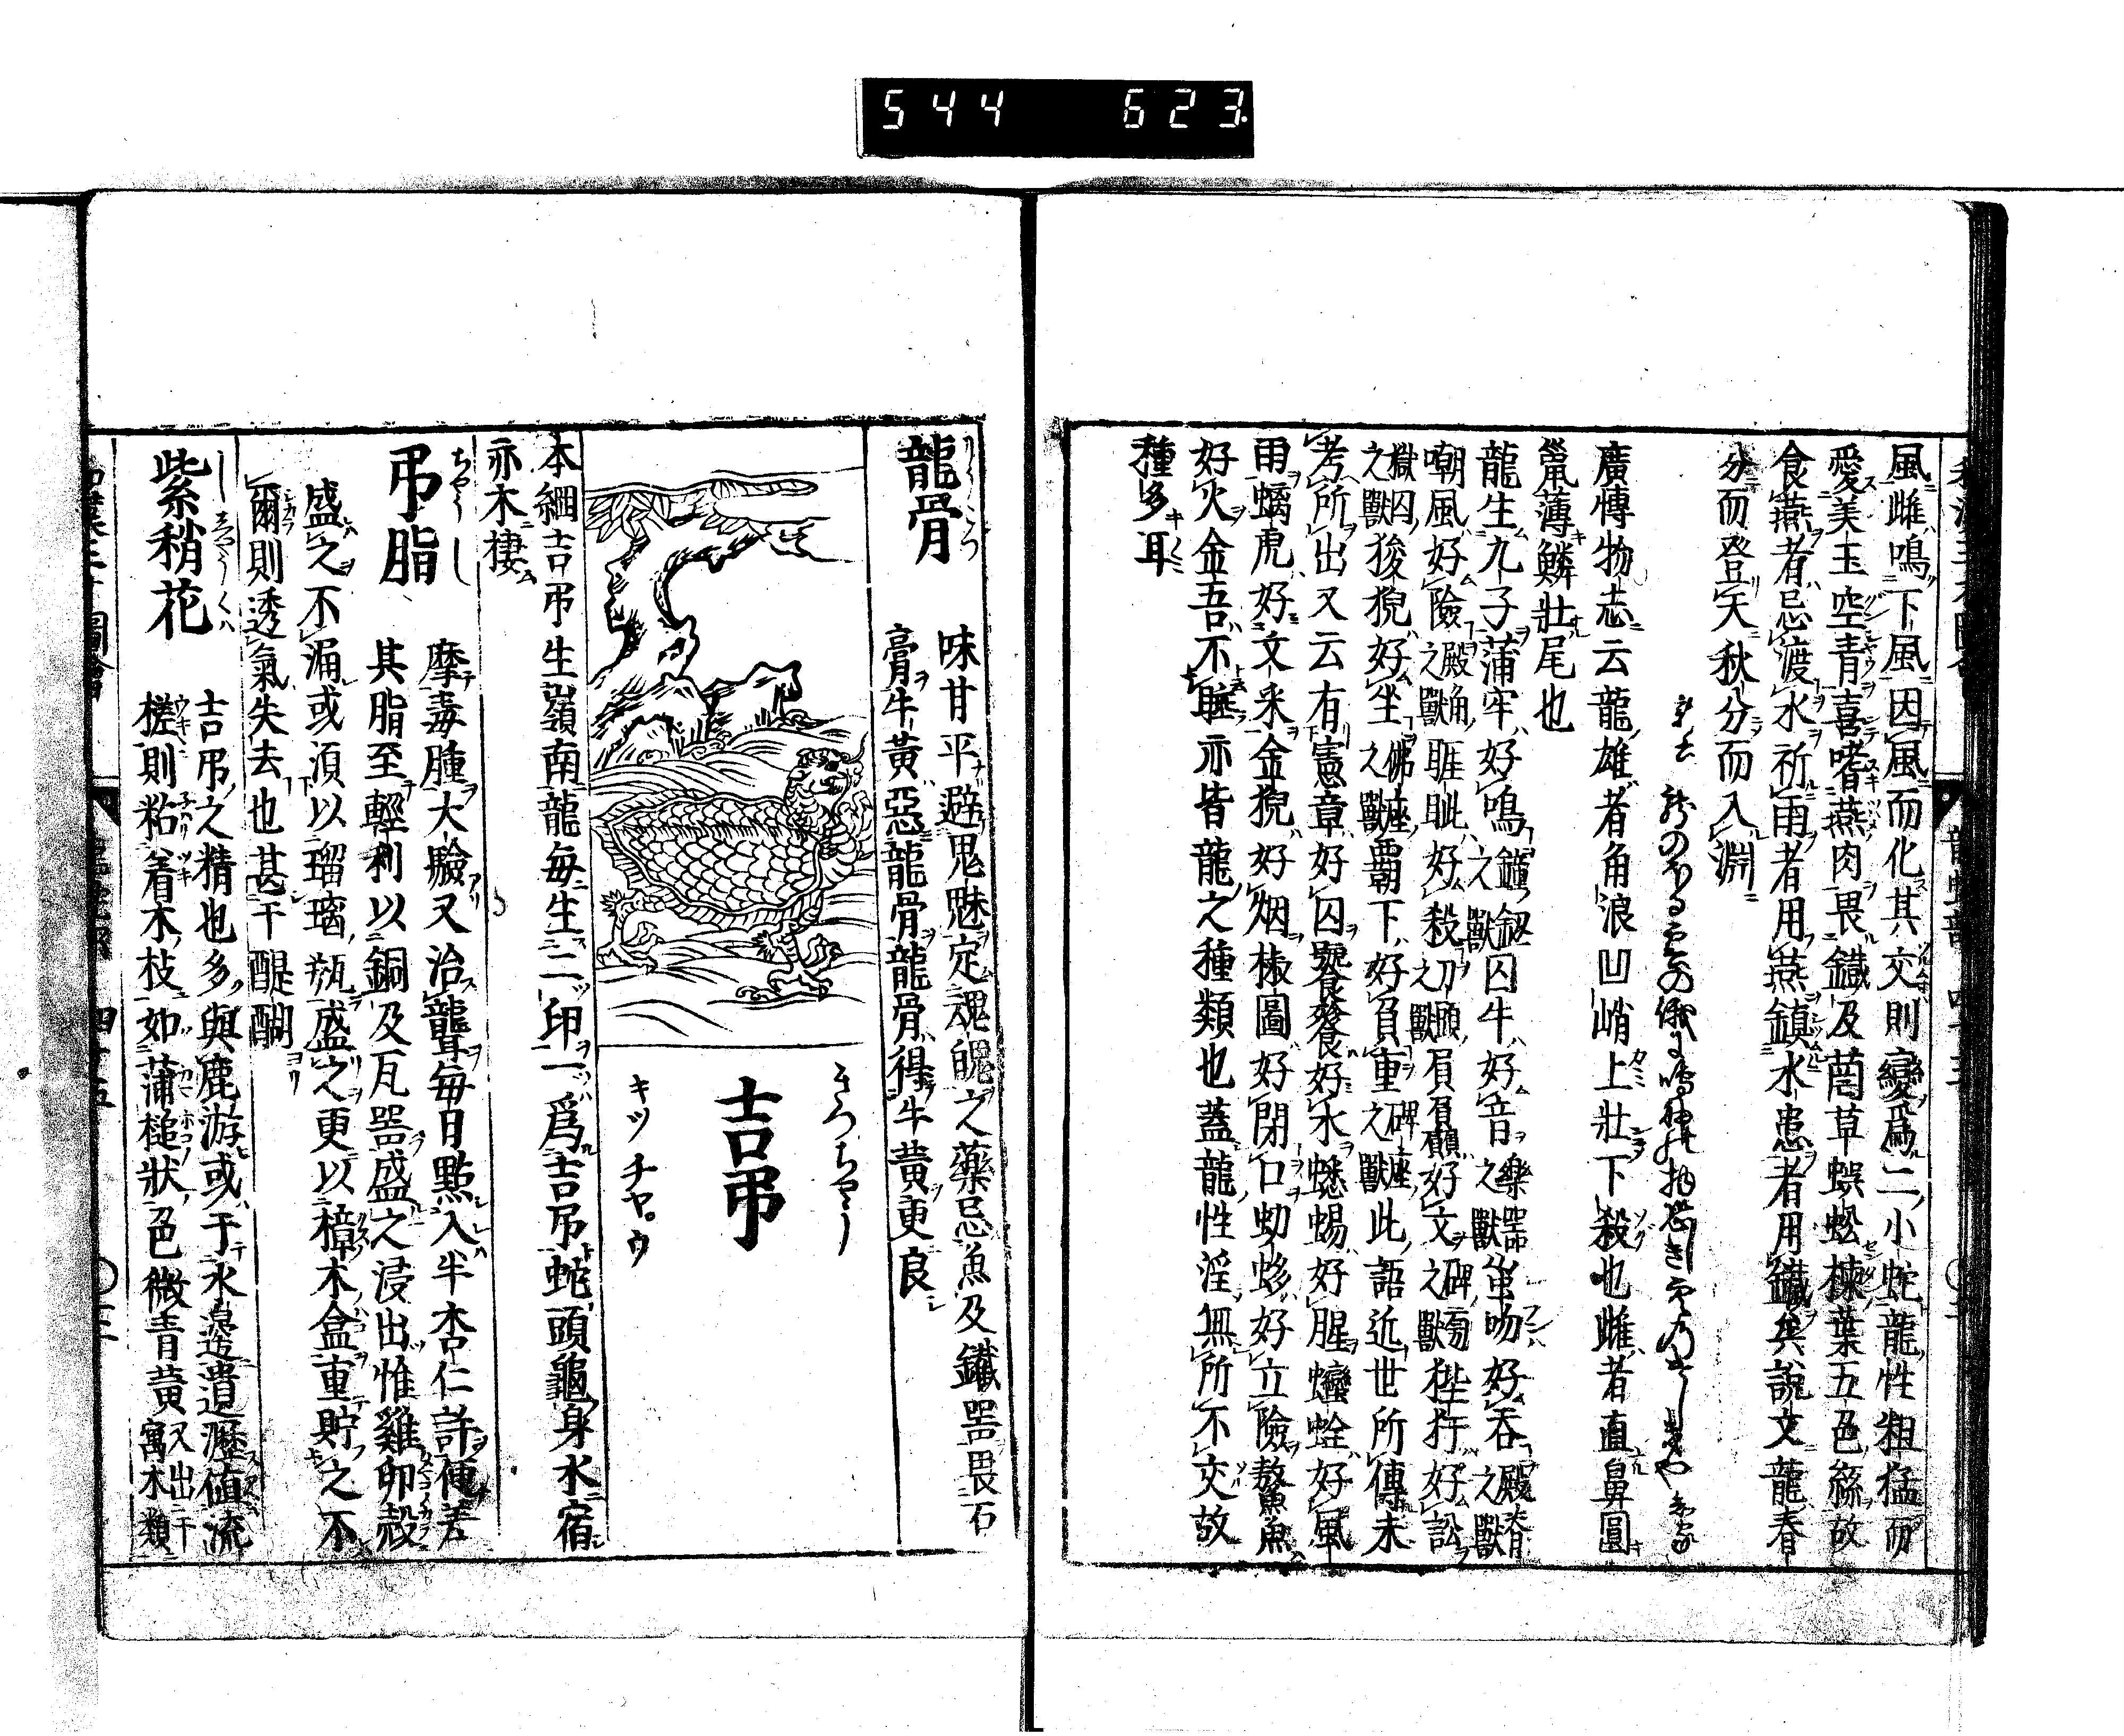 544 623.
風雌鳴下風因風而化其交則變爲二小蛇龍性粗猛而
愛美玉空青喜嗜燕肉畏鐵及𦽒草蜈蚣楝葉五色絲故
食燕者忌渡水祈雨者用燕鎮水患者用鐵矣說文龍春
分而登天秋分而入淵
廣博物志云龍雄者角浪凹峭上壯下殺也雌者直鼻圓
鬣薄鱗壯尾也
龍生九子蒲牢好鳴鐘之獸鈕囚牛好音樂器之獸蚩吻好吞殿脊之獸
嘲風好險殿角之獸睚眦好殺刀頭之獸屓屭好文碑之獸狴犴好訟
獄囚之獸狻猊好坐佛座之獸覇下好負重碑座之獸此語近世所傳未
考所出又云有憲章好囚饕餮好水蟋蜴好腥蠻蛭好風
雨螭虎好文釆金猊好烟椒圖好閉口虭蛥好立險鰲魚
好火金吾不睡亦皆龍之種類也蓋龍性淫無所不交故
種多耳
龍骨
りうこつ
味甘平避鬼魅定魂魄之藥忌魚及鐵器畏石
膏牛黃惡龍骨龍骨得牛黃更良
きつちやう
吉弔
キツ チヤ゚ウ
本綱吉弔生嶺南龍每生二卵一爲吉弔蛇頭龜身水宿
亦木棲
弔脂
ちやうし
摩毒腫大驗又治聾每日點入半杏仁許便差
其脂至輕利以銅及瓦器盛之浸出惟雞卵殼
盛之不漏或須以瑠璃瓶盛之更以樟木盒重貯之不
爾則透氣失去也甚于醍醐
紫稍花
ししやうくは
吉弔之精也多與鹿游或于水邊遺瀝値流
槎則粘着木枝如蒲槌狀色微青黃又出于寓木類